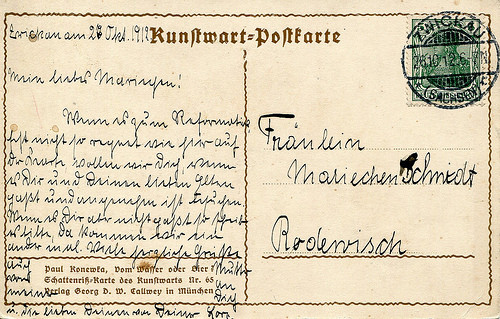 Zwickau am 26 Okt. 1912
Kunstwart-Postkarte
ZWICKAU
26.10.12.
(SACHSEN)
Mein liebes Mariechen!
Wenn es zum Reformations-
fest nicht so regnet wie hier auf
der Karte wollen wir Dich, wenn
es Dir und Deinen lieben Eltern
paßt und angenehm ist besuchen.
Wenn es Dir aber nicht paßt so schreib
es bitte, da kommen wir ein
ander mal. Viele herzliche Grüße
auch von meinen
Mutti an Dich
u. die lieben Deinen von Deiner
Fräulein
Mariechen Schmidt
Rodewisch
Paul Konewka, Vom Wasser oder Bier
Schattenriß-Karte des Kunstwarts Nr. 65
Verlag Georg D. W. Callwey in München